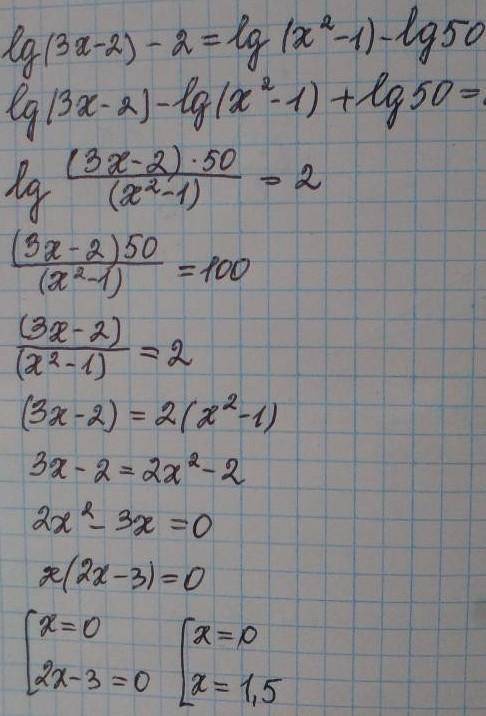 lg(3x-2) - 2 = lg(x²-1) - lg50
lg(3x-2) - lg(x²-1) + lg50 =
lg (3x-2)·50/(x²-1) = 2
(3x-2)50/(x²-1) = 100
(3x-2)/(x²-1) = 2
(3x-2) = 2(x²-1)
3x-2 = 2x²-2
2x²-3x = 0
x(2x-3) = 0
[x=0 [x=0
[2x-3=0 [x=1,5